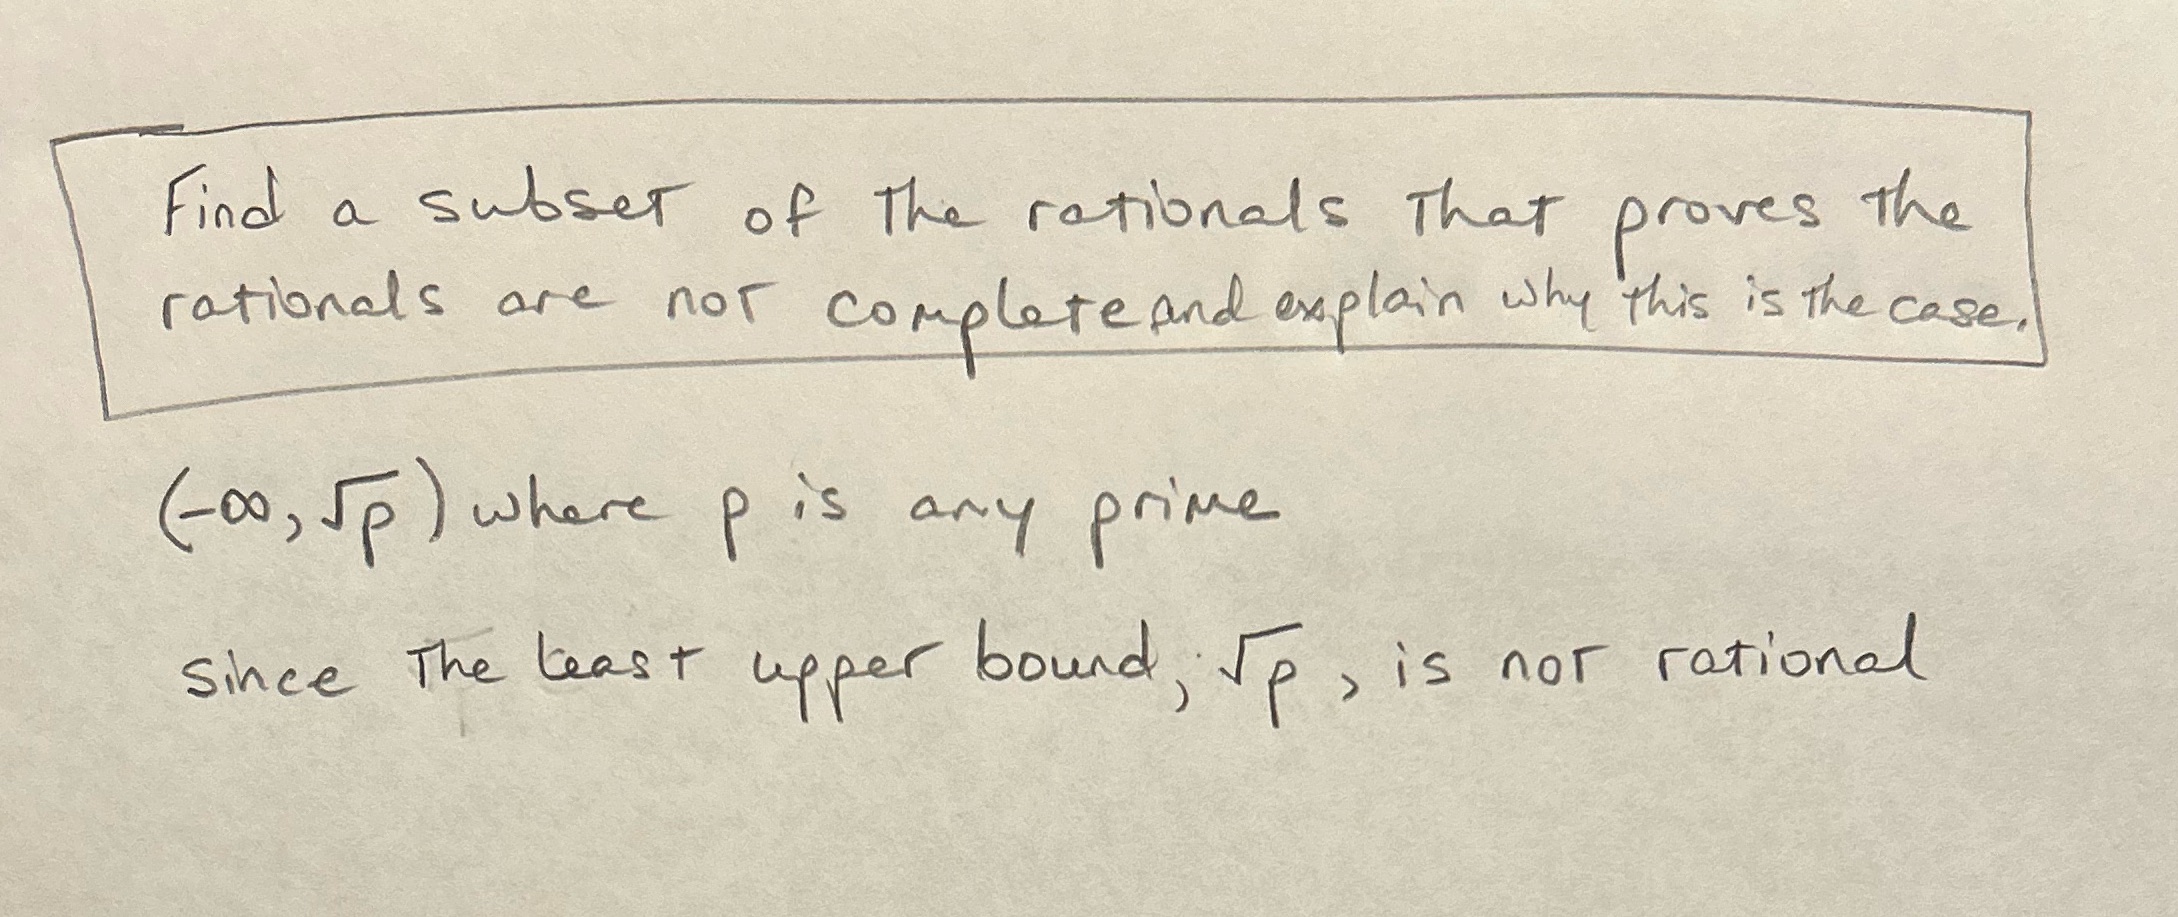 Find a subset of the rationals that proves the
rationals are not complete and explain why this is the case.
(-∞, √p) where p is any prime
since the least upper bound, √p, is not rational